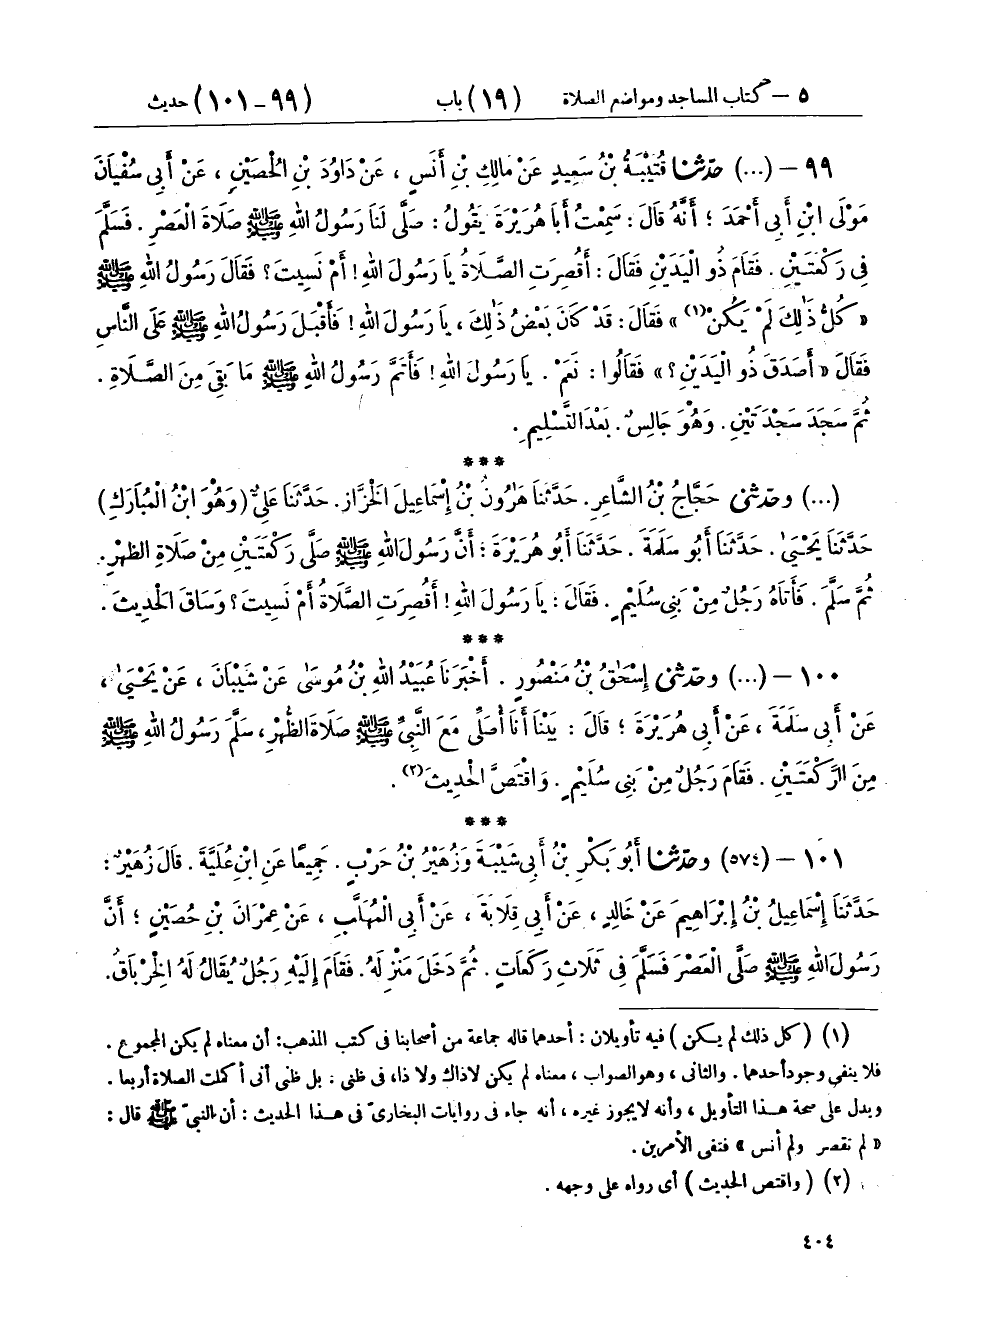 ٥ – كتاب المساجد ومواضع الصلاة (١٩) باب (٩٩ – ١٠١) حديث
٩٩ – (...) حدّثنا قُتَيْبَةُ بْنُ سَعِيدٍ عَنْ مَالِكِ بْنِ أَنَسٍ ، عَنْ دَاوُدَ بْنِ الْحُصَيْنِ ، عَنْ أَبِي سُفْيَانَ
مَوْلَى ابْنِ أَبِي أَحْمَدَ ؛ أَنَّهُ قَالَ : سَمِعْتُ أَبَا هُرَيْرَةَ يَقُولُ : صَلَّى لَنَا رَسُولُ اللهِ ﷺ صَلَاةَ الْعَصْرِ . فَسَلَّمَ
فِي رَكْعَتَيْنِ . فَقَامَ ذُو الْيَدَيْنِ فَقَالَ : أَقُصِرَتِ الصَّلَاةُ يَا رَسُولَ اللهِ ! أَمْ نَسِيتَ ؟ فَقَالَ رَسُولُ اللهِ ﷺ
« كُلُّ ذَلِكَ لَمْ يَكُنْ(١) » فَقَالَ : قَدْ كَانَ بَعْضُ ذَلِكَ ، يَا رَسُولَ اللهِ ! فَأَقْبَلَ رَسُولُ اللهِ ﷺ عَلَى النَّاسِ
فَقَالَ « أَصَدَقَ ذُو الْيَدَيْنِ ؟ » فَقَالُوا : نَعَمْ . يَا رَسُولَ اللهِ ! فَأَتَمَّ رَسُولُ اللهِ ﷺ مَا بَقِيَ مِنَ الصَّلَاةِ .
ثُمَّ سَجَدَ سَجْدَتَيْنِ . وَهُوَ جَالِسٌ . بَعْدَ التَّسْلِيمِ .
***
(...) وحدّثني حَجَّاجُ بْنُ الشَّاعِرِ . حَدَّثَنَا هَارُونُ بْنُ إِسْمَاعِيلَ الْخَزَّازُ . حَدَّثَنَا عَلِيٌّ (وَهُوَ ابْنُ الْمُبَارَكِ)
حَدَّثَنَا يَحْيَى . حَدَّثَنَا أَبُو سَلَمَةَ . حَدَّثَنَا أَبُو هُرَيْرَةَ ؛ أَنَّ رَسُولَ اللهِ ﷺ صَلَّى رَكْعَتَيْنِ مِنْ صَلَاةِ الظُّهْرِ .
ثُمَّ سَلَّمَ . فَأَتَاهُ رَجُلٌ مِنْ بَنِي سُلَيْمٍ . فَقَالَ : يَا رَسُولَ اللهِ ! أَقُصِرَتِ الصَّلَاةُ أَمْ نَسِيتَ ؟ وَسَاقَ الْحَدِيثَ .
***
١٠٠ – (...) وحدّثني إِسْحَقُ بْنُ مَنْصُورٍ . أَخْبَرَنَا عُبَيْدُ اللهِ بْنُ مُوسَى عَنْ شَيْبَانَ ، عَنْ يَحْيَى ،
عَنْ أَبِي سَلَمَةَ ، عَنْ أَبِي هُرَيْرَةَ ؛ قَالَ : بَيْنَا أَنَا أُصَلِّي مَعَ النَّبِيِّ ﷺ صَلَاةَ الظُّهْرِ ، سَلَّمَ رَسُولُ اللهِ ﷺ
مِنَ الرَّكْعَتَيْنِ . فَقَامَ رَجُلٌ مِنْ بَنِي سُلَيْمٍ . وَاقْتَصَّ الْحَدِيثَ(٢) .
***
١٠١ – (٥٧٤) وحدّثنا أَبُو بَكْرِ بْنُ أَبِي شَيْبَةَ وَزُهَيْرُ بْنُ حَرْبٍ . جَمِيعًا عَنِ ابْنِ عُلَيَّةَ . قَالَ زُهَيْرٌ :
حَدَّثَنَا إِسْمَاعِيلُ بْنُ إِبْرَاهِيمَ عَنْ خَالِدٍ ، عَنْ أَبِي قِلَابَةَ ، عَنْ أَبِي الْمُهَلَّبِ ، عَنْ عِمْرَانَ بْنِ حُصَيْنٍ ؛ أَنَّ
رَسُولَ اللهِ ﷺ صَلَّى الْعَصْرَ فَسَلَّمَ فِي ثَلَاثِ رَكَعَاتٍ . ثُمَّ دَخَلَ مَنْزِلَهُ . فَقَامَ إِلَيْهِ رَجُلٌ يُقَالُ لَهُ الْخِرْبَاقُ .
(١) (كل ذلك لم يكن) فيه تأويلان : أحدهما قاله جماعة من أصحابنا فى كتب المذهب: أن معناه لم يكن المجموع .
فلا ينفى وجود أحدهما . والثانى ، وهو الصواب ، معناه لم يكن لا ذاك ولا ذا، فى ظنى : بل ظنى أنى أكملت الصلاة أربعا .
ويدل على صحة هذا التأويل ، وأنه لا يجوز غيره ، أنه جاء فى روايات البخارىّ فى هذا الحديث : أن النبىّ ﷺ قال :
« لم تقصر ولم أنس » فنفى الأمرين .
(٢) (واقتص الحديث) أى رواه على وجهه .
٤٠٤